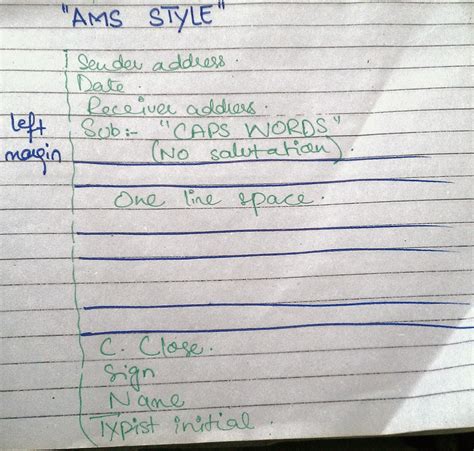 "AMS STYLE"
Sender address.
Date.
Receiver address.
left margin
Sub:- "CAPS WORDS"
(No salutation).
One line space.
C. Close.
Sign
Name
Typist initial.